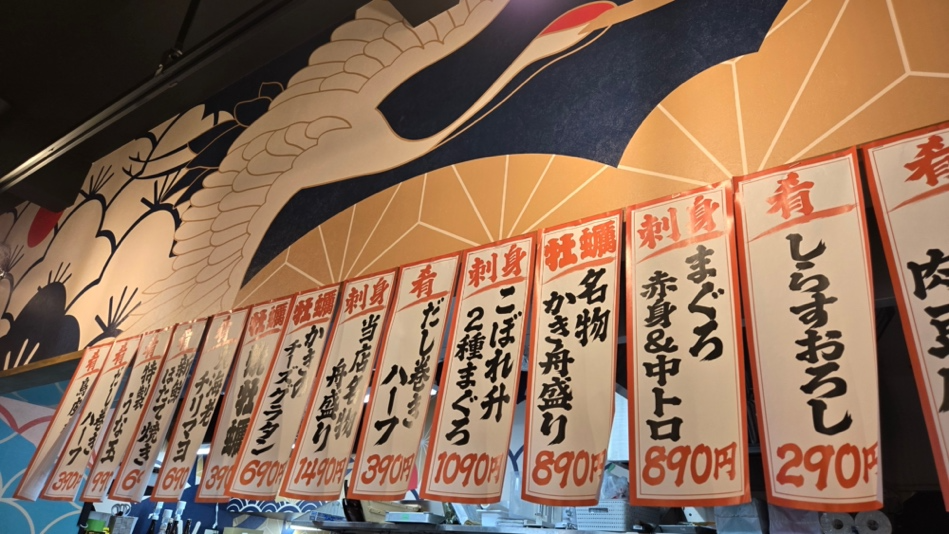 肴
肉
肴
しらすおろし
290円
刺身
まぐろ
赤身&中トロ
890円
牡蠣
名物
かき舟盛り
890円
刺身
こぼれ升
2種まぐろ
1090円
肴
だし巻き
ハーフ
390円
刺身
当店名物
舟盛り
1490円
牡蠣
かき
チーズグラタン
690円
牡蠣
牡蠣
390
肴
チリマヨ
690
肴
新鮮
ほたて焼き
690
肴
特製
うな玉
肴
だし巻き
ハーフ
390